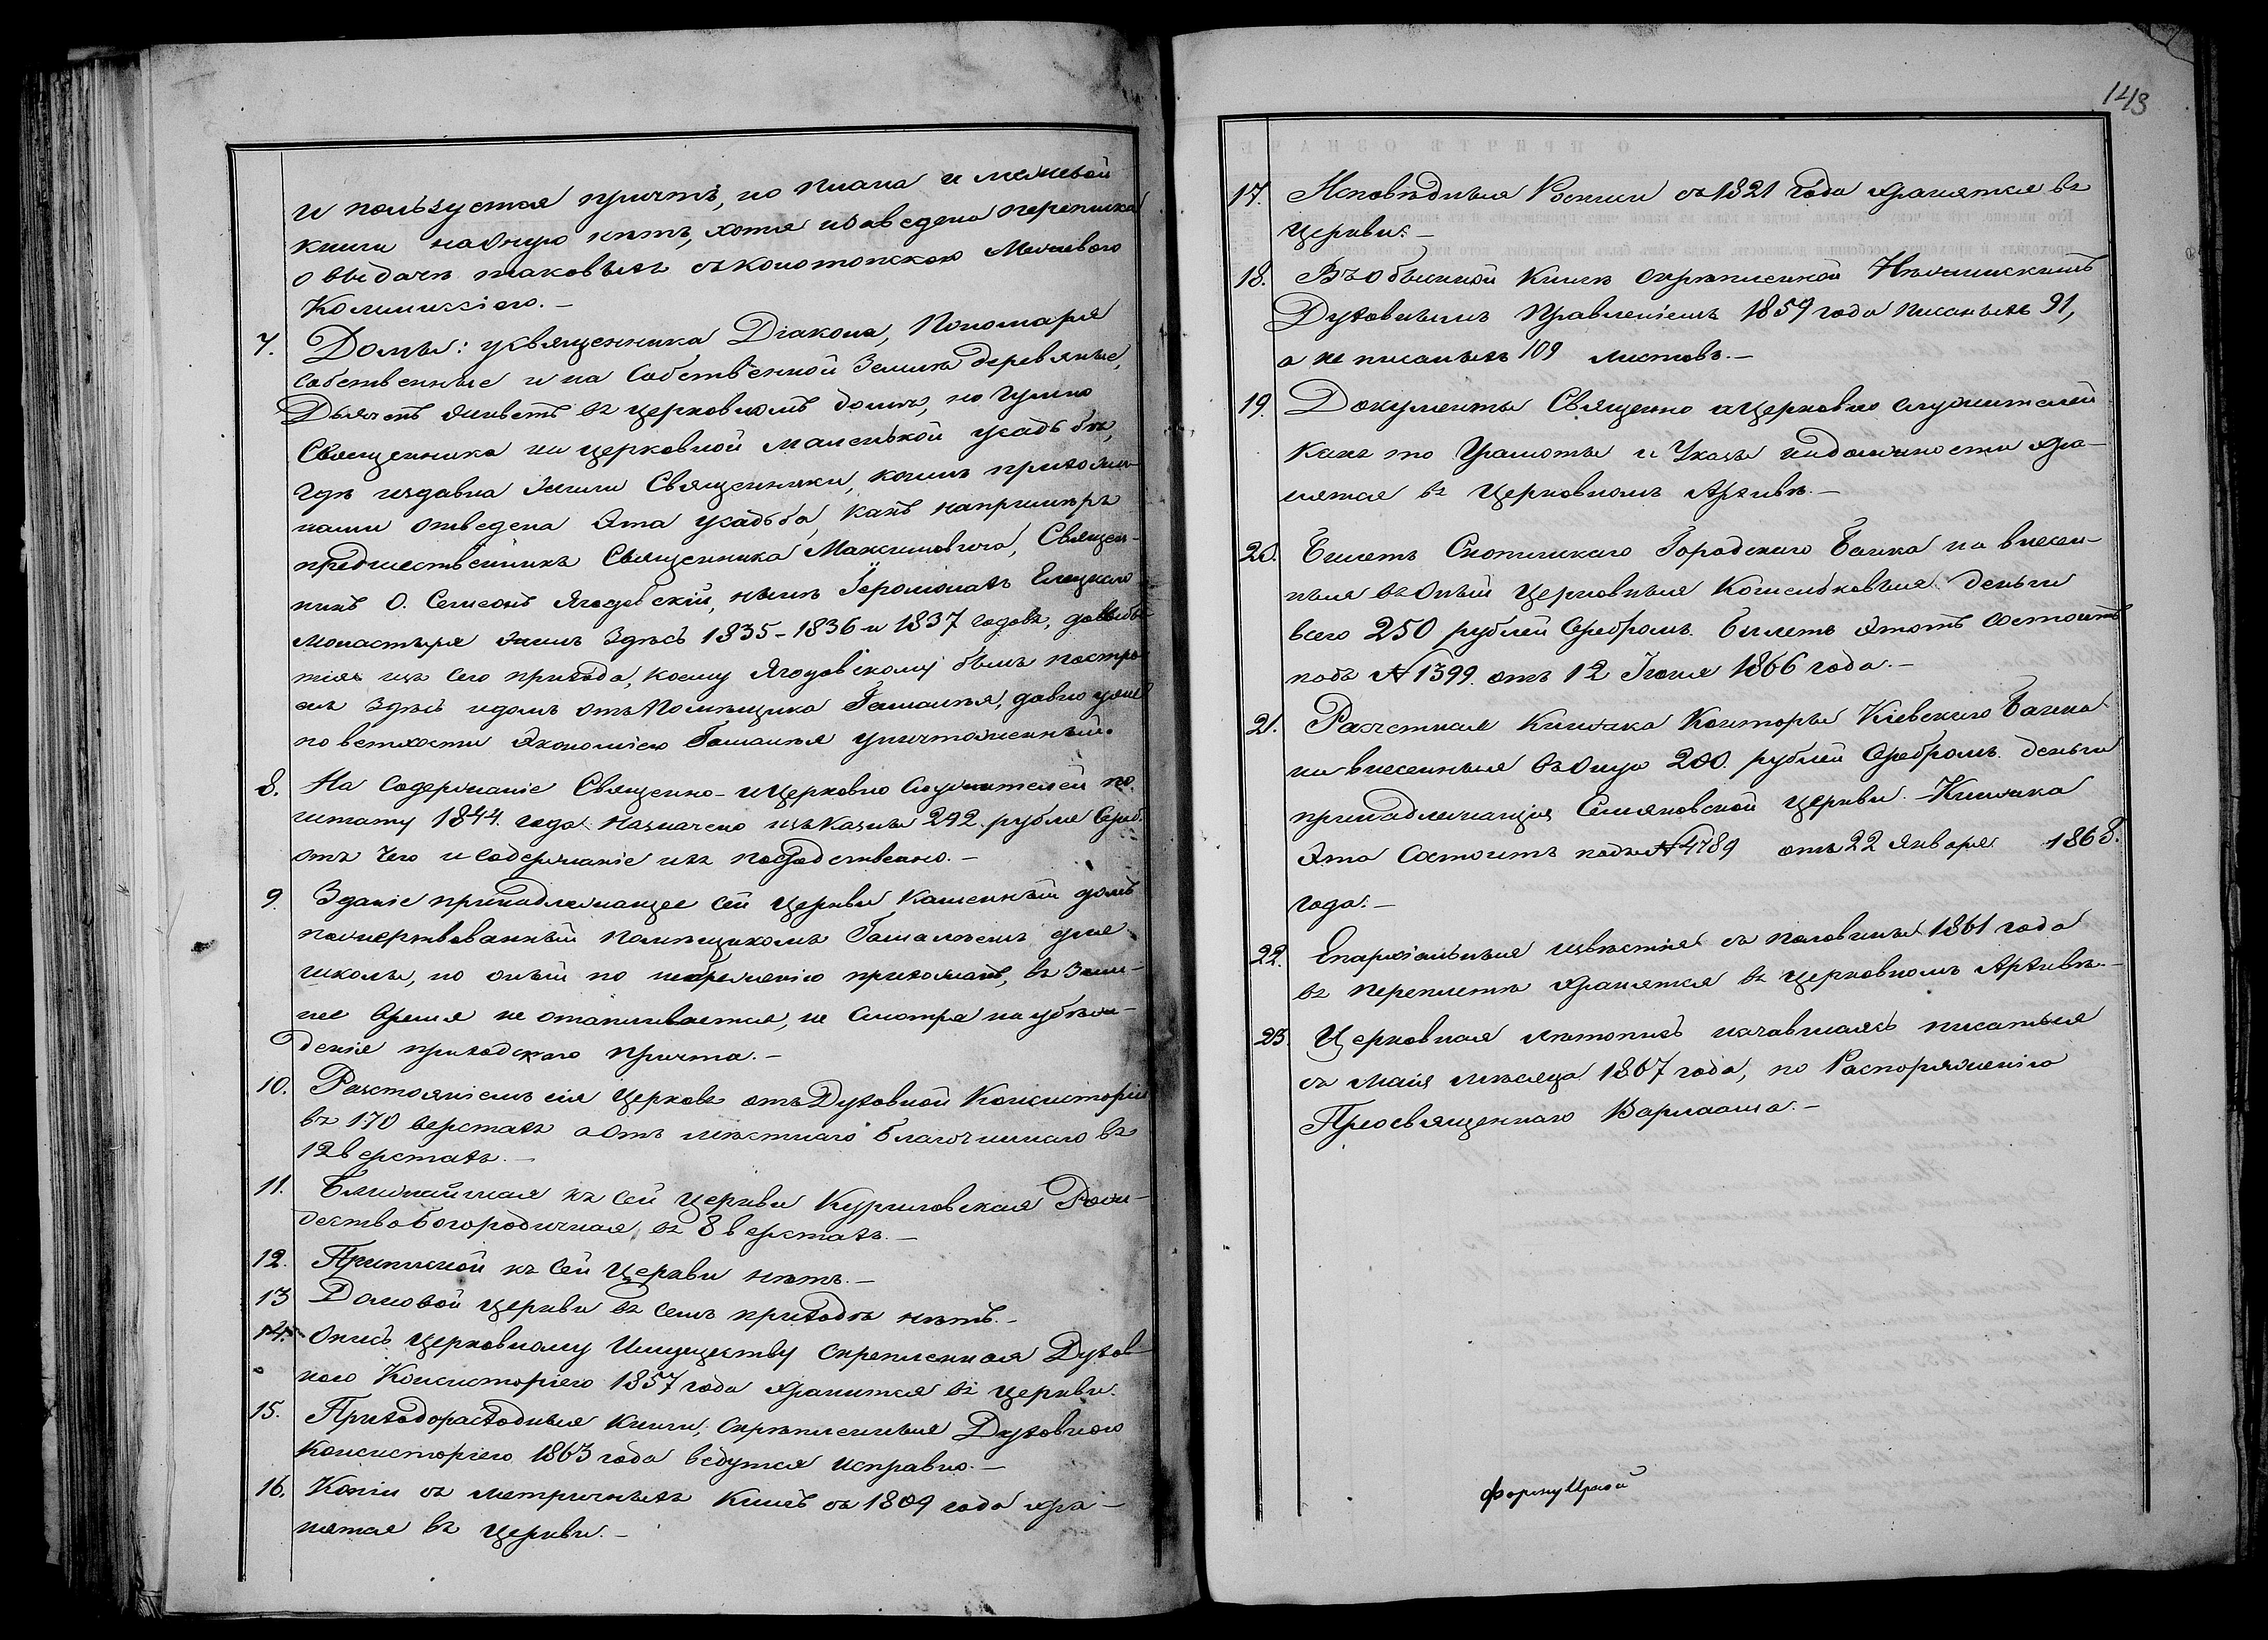 и пользуется причтъ, но плана и межевой
книги на оную нѣтъ, хотя и заведена переписка
о выдачѣ таковыхъ съ Конотопскою Межевою
Коммиссіею. —
7. Домы: у Священника Діакона, Пономаря
собственные и на собственной землѣ деревяные,
Дьячекъ живетъ въ церковномъ домѣ, но гумно
Священника на церковной маленькой усадьбѣ,
гдѣ издавна жили Священники, коимъ прихожа-
нами отведена эта усадьба, какъ напримѣръ
предшественникъ Священника Максимовича, Священ-
никъ О. Симеонъ Ягодовскій, нынѣ Іеромонахъ Елецкаго
Монастыря жилъ здѣсь 1835-1836 и 1837 годовъ, до выбы-
тія изъ сего прихода, коему Ягодовскому былъ построе-
нъ здѣсь и домъ отъ Помѣщика Гамалѣя, давно уже
по ветхости Экономіею Гамалѣя уничтоженный.
8. На содержаніе Священно-и церковно служителей по
штату 1844. года назначено изъ казны 242. рубля Сереб.
отъ чего и содержаніе ихъ посредственно. —
9. Зданіе принадлежащее сей церкви каменный домъ
пожертвованный помѣщикомъ Гамалѣемъ для
школы, но оный по нерадѣнію прихожанъ, въ зим-
нее время не отапливается, не смотря на убѣж-
денія приходскаго причта. —
10. Разстояніемъ сія церковь отъ Духовной Консисторіи
въ 170 верстахъ а отъ мѣстнаго благочиннаго въ
12 верстахъ. —
11. Ближайшая къ сей церкви Куриловская Рож-
дествобогородичная въ 8 верстахъ. —
12. Приписной къ сей церкви нѣтъ. —
13 Домовой церкви въ семъ приходѣ нѣтъ. —
14. Опись церковному имуществу скрепленная Духов-
ною Консисторіею 1857 года хранится въ церкви.
15. Приходорасходныя книги, скрѣпленныя Духовною
Консисторіею 1863 года ведутся исправно. —
16. Копіи съ метричныхъ книгъ съ 1809 года хра-
нятся въ церкви. —
143
17. Исповѣдныя Росписи съ 1821 года хранятся въ
церкви. —
18. Въ обыскной книгѣ скрѣпленной Нѣжинскимъ
Духовнымъ Правленіемъ 1859 года писанныхъ 91,
а не писанныхъ 109 листовъ. —
19. Документы Священно и церковно служителей
какъ то грамоты и Указы на должности хра-
нятся въ церковномъ Архивѣ. —
20. Билетъ Скопинскаго Городскаго Банка на внесен-
ныя въ оный церковныя кошельковыя деньги
всего 250 рублей серебромъ. Билетъ этотъ состоитъ
подъ № 1399. отъ 12 Іюня 1866 года. —
21. Расчетная Книжка Конторы Кіевскаго Банка
на внесенныя въ оную 200. рублей серебромъ деньги
принадлежащія Семяновской церкви. Книжка
эта состоитъ подъ № 4789 отъ 22 Января 1868.
года. —
22. Епархіальныя извѣстія съ половины 1861 года
въ переплетѣ хранятся въ церковномъ Архивѣ. —
23. Церковная лѣтопись начавшаясь писаться
съ Маія мѣсяца 1867 года, по Распоряженію
Преосвященнаго Варлаама. —